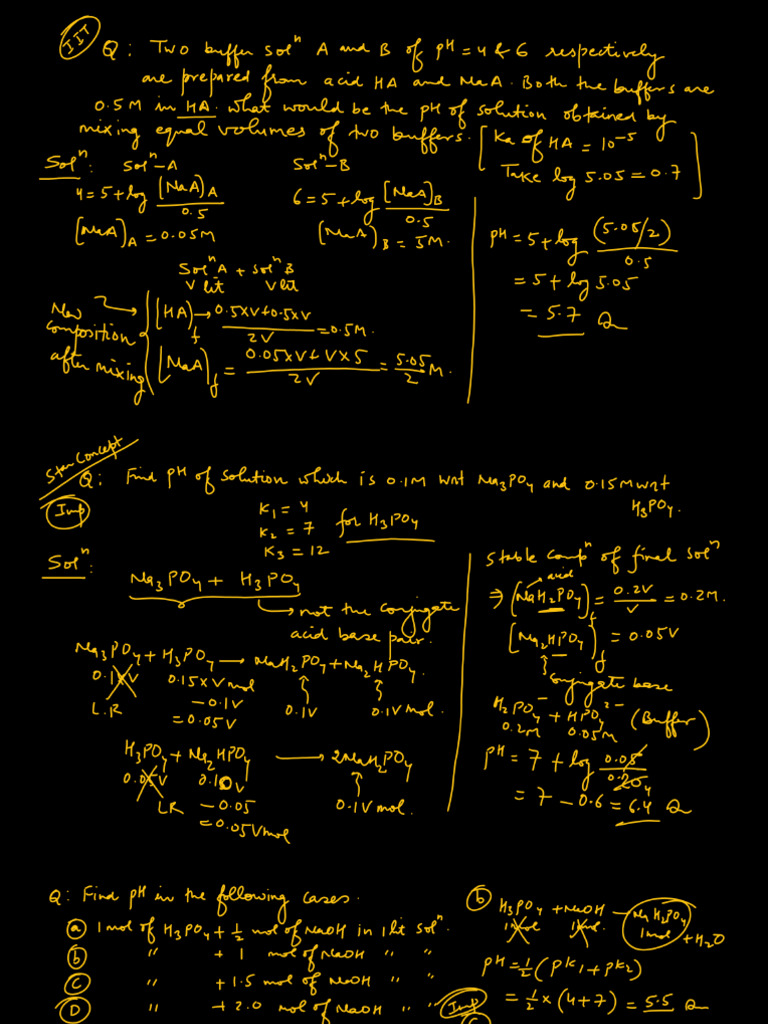 IIT
Q: Two buffer solⁿ A and B of pH = 4 & 6 respectively
are prepared from acid HA and NaA. Both the buffers are
0.5 M in HA. what would be the pH of solution obtained by
mixing equal volumes of two buffers. [Ka of HA = 10⁻⁵
Take log 5.05 = 0.7]
Solⁿ:
Solⁿ-A
4 = 5 + log [NaA]A / 0.5
[NaA]A = 0.05M
Solⁿ-B
6 = 5 + log [NaA]B / 0.5
[NaA]B = 5M.
Solⁿ A + Solⁿ B
V lit V lit
New composition after mixing
[HA]f → 0.5xV+0.5xV / 2V = 0.5M.
[NaA]f = 0.05xV+Vx5 / 2V = 5.05/2 M.
pH = 5 + log (5.05/2) / 0.5
= 5 + log 5.05
= 5.7
Star Concept
Imp
Q: Find pH of solution which is 0.1M wrt Na₃PO₄ and 0.15M wrt
H₃PO₄.
K₁ = 4
K₂ = 7
K₃ = 12
for H₃PO₄
Solⁿ:
Na₃PO₄ + H₃PO₄
→ not the conjugate
acid base pair.
Na₃PO₄ + H₃PO₄ → NaH₂PO₄ + Na₂HPO₄.
0.1xV 0.15xV mol
L.R - 0.1V 0.1V 0.1V mol.
= 0.05V
H₃PO₄ + Na₂HPO₄ → 2NaH₂PO₄
0.05V 0.10V
LR - 0.05 0.1V mol.
= 0.05V mol
Stable compⁿ of final solⁿ
acid
⇒ [NaH₂PO₄]f = 0.2V / V = 0.2M.
[Na₂HPO₄]f = 0.05V
conjugate base
H₂PO₄⁻ + HPO₄²⁻ (Buffer)
0.2M 0.05M
pH = 7 + log 0.05 / 0.20 4
= 7 - 0.6 = 6.4
Q: Find pH in the following cases.
a 1 mol of H₃PO₄ + 1/2 mol of NaOH in 1 lit solⁿ.
b " + 1 mol of NaOH " "
c " + 1.5 mol of NaOH " "
D " + 2.0 mol of NaOH " "
b H₃PO₄ + NaOH → NaH₂PO₄ + H₂O
1mol 1mol. 1mol
pH = 1/2 (pK₁ + pK₂)
= 1/2 x (4+7) = 5.5
Imp
C